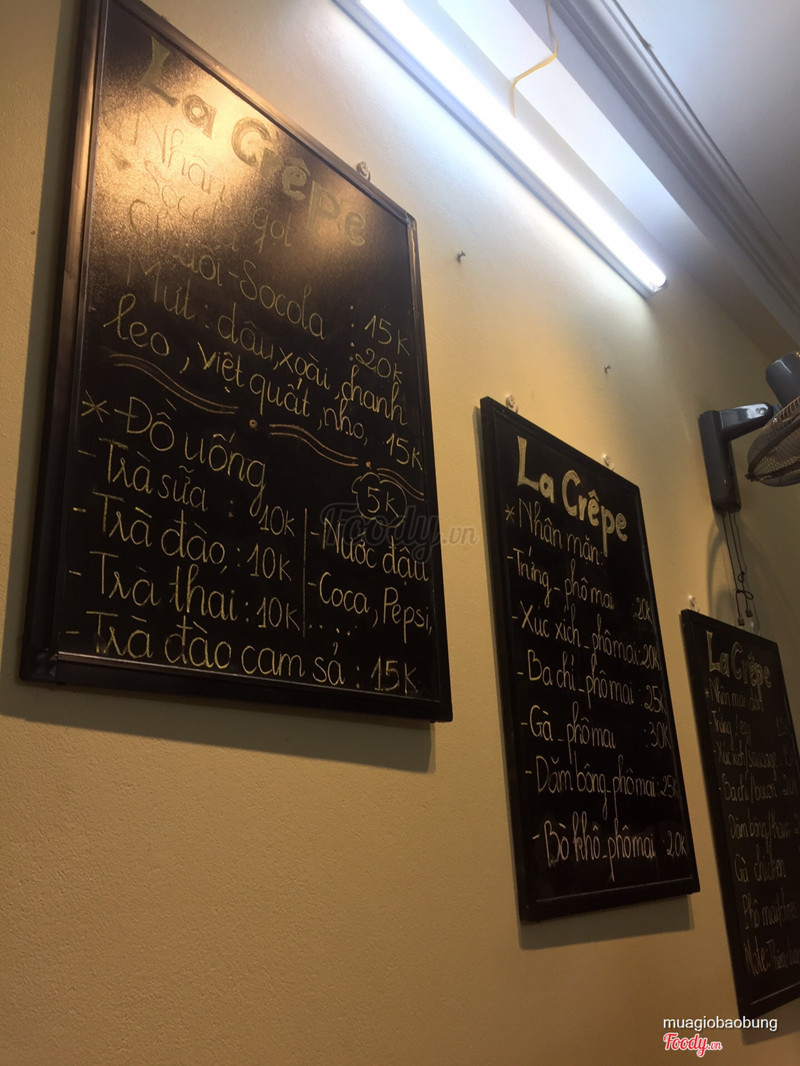 La Crêpe
Nhân ngọt
Socola
Chuối-Socola : 15K
: 20K
Mứt: dâu, xoài, chanh
leo, việt quất, nho, 15K
* Đồ uống
- Trà sữa : 10K
- Trà đào, : 10K
- Trà thái : 10K
- Trà đào cam sả : 15K
5K
- Nước dâu
- Coca, Pepsi,
.....
La Crêpe
* Nhân mặn:
- Trứng_phô mai :20K
- Xúc xích_phô mai:20K
- Ba chỉ_phô mai :25K
- Gà_phô mai :30K
- Dăm bông_phô mai:25K
- Bò khô_phô mai 20K
La Crêpe
Trứng/egg
Xúc xích/sausage
- Ba chỉ/bacon
Dăm bông/
Gà chicken
Phô mai/
Note:
Foody.vn
muagiobaobung
Foody.vn